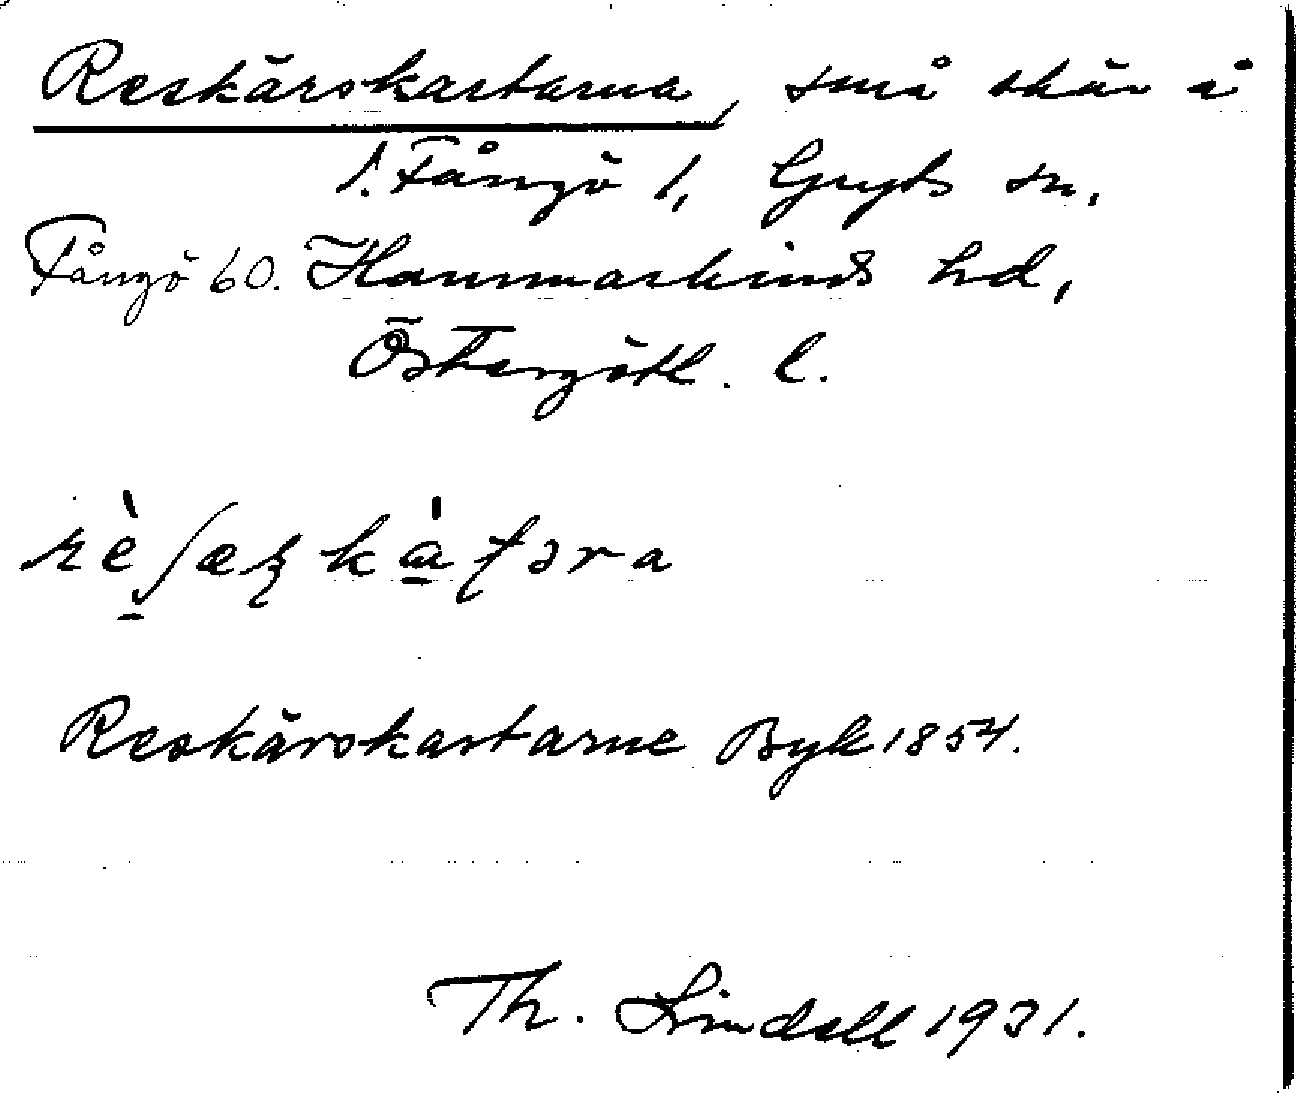 Reskärskartarna, små skär å
1. Fångö 1, Gryts sn,
Fångö 60. Hammarkinds hd,
Östergötl. l.
Reskärskartarne Byk 1854.
Th. Lindell 1931.